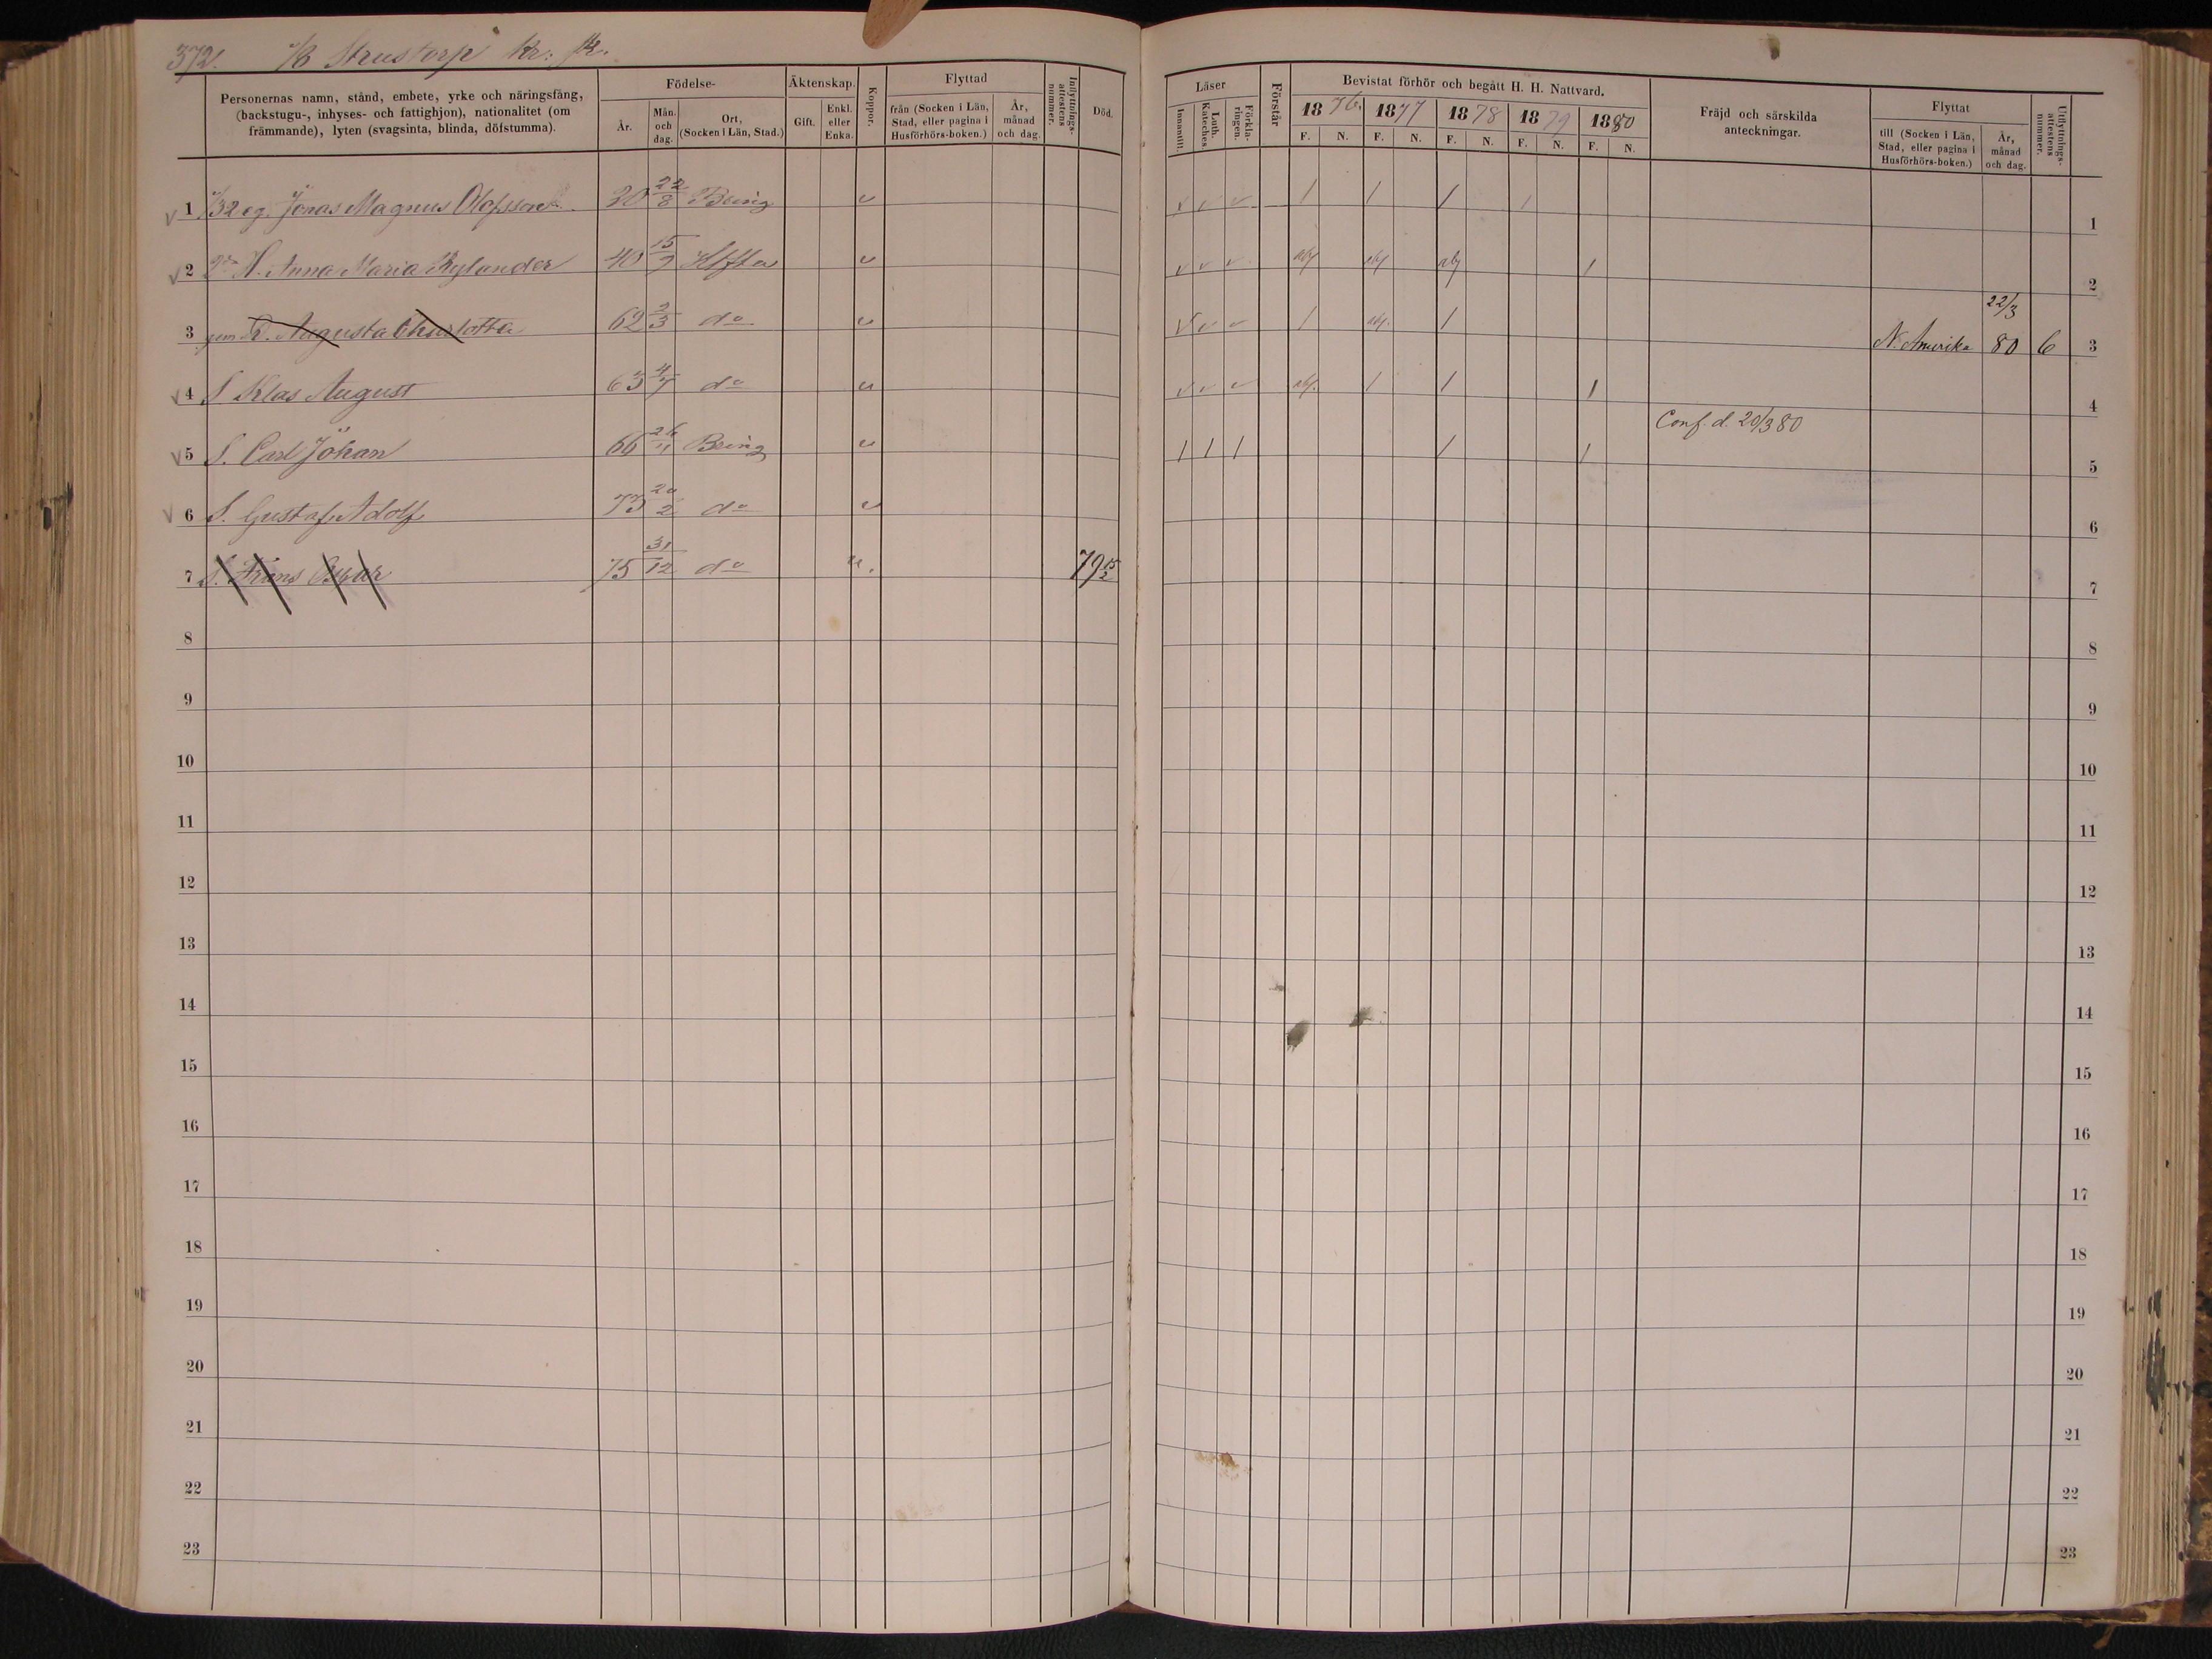 372. 1/8 Strustorp Kr: sk.
Personernas namn, stånd, embete, yrke och näringsfång, (backstugu-, inhyses- och fattighjon), nationalitet (om främmande), lyten (svagsinta, blinda, döfstumma).
Födelse-
År. Mån. och dag. Ort, (Socken i Län, Stad.)
Äktenskap.
Gift. Enkl. eller Enka.
Koppor.
Flyttad
från (Socken i Län, Stad, eller pagina i Husförhörs-boken.) År, månad och dag.
Inflyttnings-attestens nummer.
Död.
Läser
Innantill. Luth. Kateches. Förkla-ringen.
Förstår
Bevistat förhör och begått H. H. Nattvard.
1876. 1877 1878 1879 1880
F. N. F. N. F. N. F. N. F. N.
Fräjd och särskilda anteckningar.
Flyttat
till (Socken i Län, Stad, eller pagina i Husförhörs-boken.) År, månad och dag.
Utflyttnings-attestens nummer.
1 1/32 eg. Jonas Magnus Olofsson 30 22/8 v v v v 1 1 1 1 1
2 H. Anna Maria Rylander 40 15/9 v v v v abf abf abf 1 2
3 Augusta Charlotta 62 2/3 do v v v v 1 abf. 1 N. Amerika 22/3 80 6 3
4 S Klas August 63 4/7 do v v v v abf. 1 1 1 4
5 S. Carl Johan 66 26/11 v 1 1 1 1 1 Conf. d. 20/3 80 5
6 S. Gustaf Adolf 73 20/2 do v 6
7 S. Frans Oskar 75 31/12 do v. 79 15/2 7
8 8
9 9
10 10
11 11
12 12
13 13
14 14
15 15
16 16
17 17
18 18
19 19
20 20
21 21
22 22
23 23